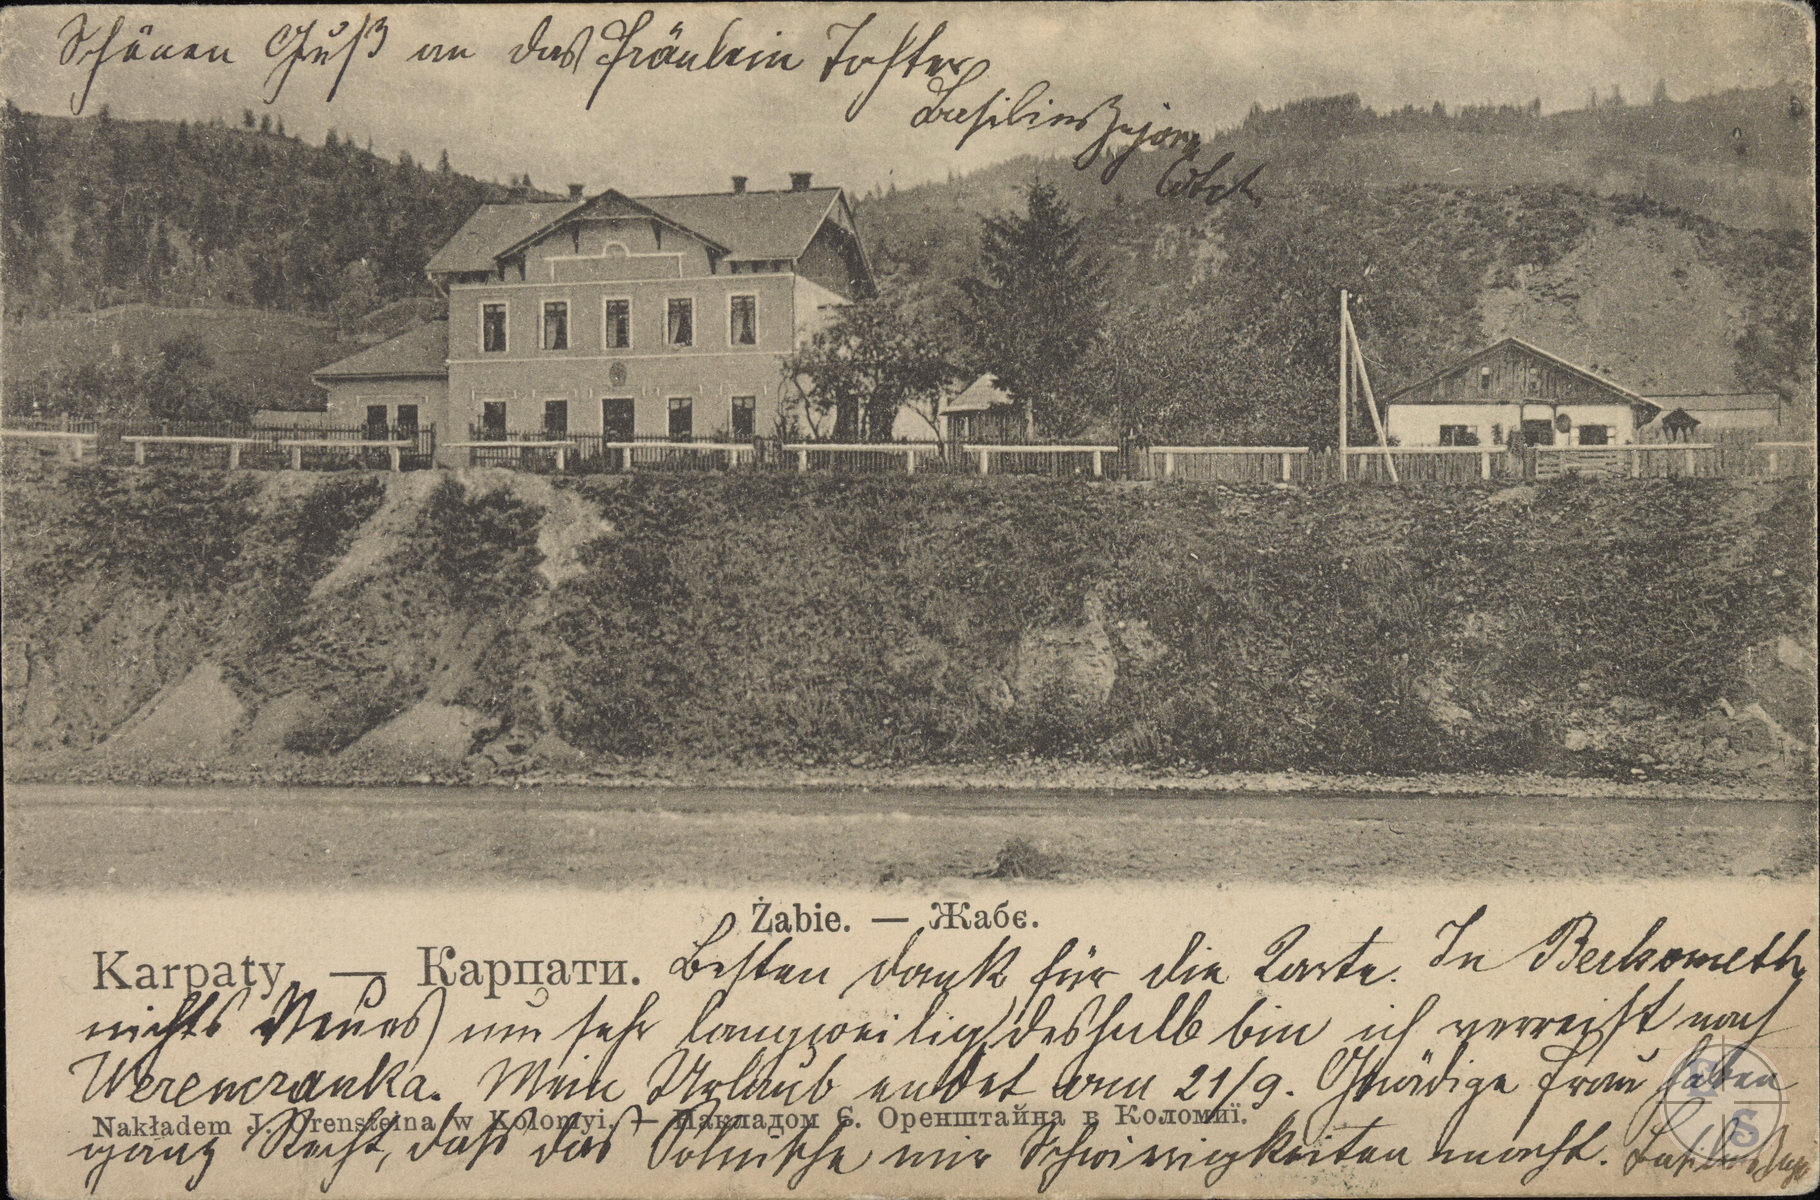 Schönen Gruß an das Fräulein Tochter
Basilius
Żabie. — Жабє.
Karpaty. — Карпати. Besten Dank für die Karte. In Berhometh
nichts Neues, nur sehr langweilig, deshalb bin ich verreist nach
Werenczanka. Mein Urlaub endet am 21/9. Gnädige Frau haben
Nakładem J. Orensteina w Kolomyi. — Накладом Є. Оренштайна в Коломиї.
ganz Recht, daß das Polnische mir Schwierigkeiten macht.